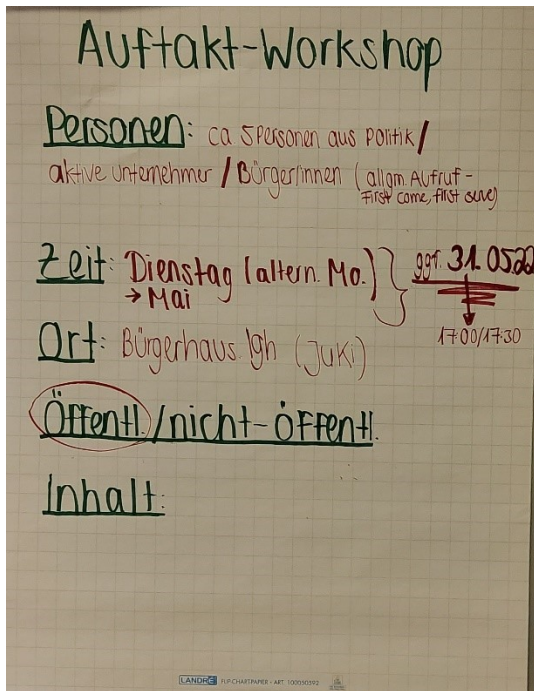 Auftakt-Workshop
Personen: ca 5 Personen aus Politik /
aktive Unternehmer / Bürger/innen (allgm. Aufruf -
First come, first serve)
Zeit: Dienstag (altern. Mo.)
→ Mai
ggf. 31.05.22
17:00/17:30
Ort: Bürgerhaus Igh (Juki)
Öffentl. / nicht-öffentl.
Inhalt:
LANDRÉ FLIPCHARTPAPIER - ART. 100050592